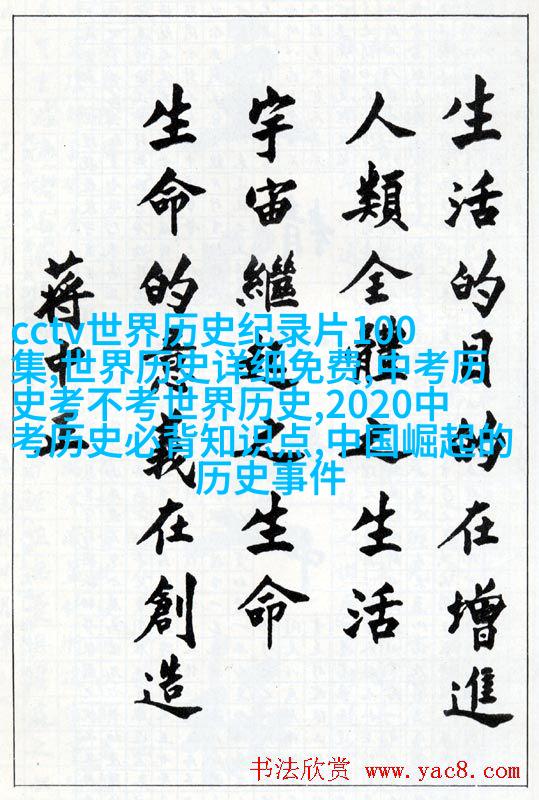 生活的目的在增進
人類全體之生活
宇宙繼起之生命
生命的意義在創造
蔣中正
cctv世界历史纪录片100
集,世界历史详细免费,中考历
史考不考世界历史,2020中
考历史必背知识点,中国崛起的
历史事件
书法欣赏 www.yac8.com